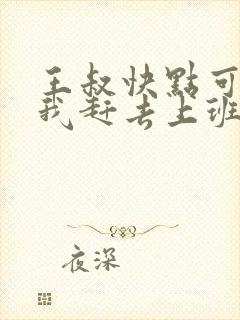 王叔快點可
我赶去上班
夜深